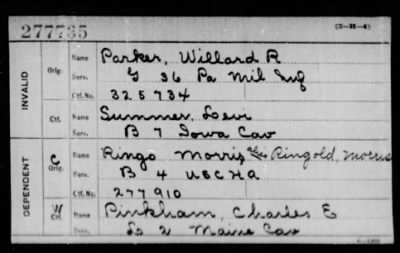 277735 (3-H-4)
INVALID
Orig. Name Parker, Willard R
Serv. G 36 Pa Mil Inf
Ctf. No. 325734
Ctf. Name Summer, Levi
Serv. B 7 Iowa Cav
DEPENDENT
C Orig. Name Ringo Morris Ringold, Morris
Serv. B 4 USCHA
Ctf. No. 277910
W Ctf. Name Pinkham, Charles E
Serv. 2 Maine Cav